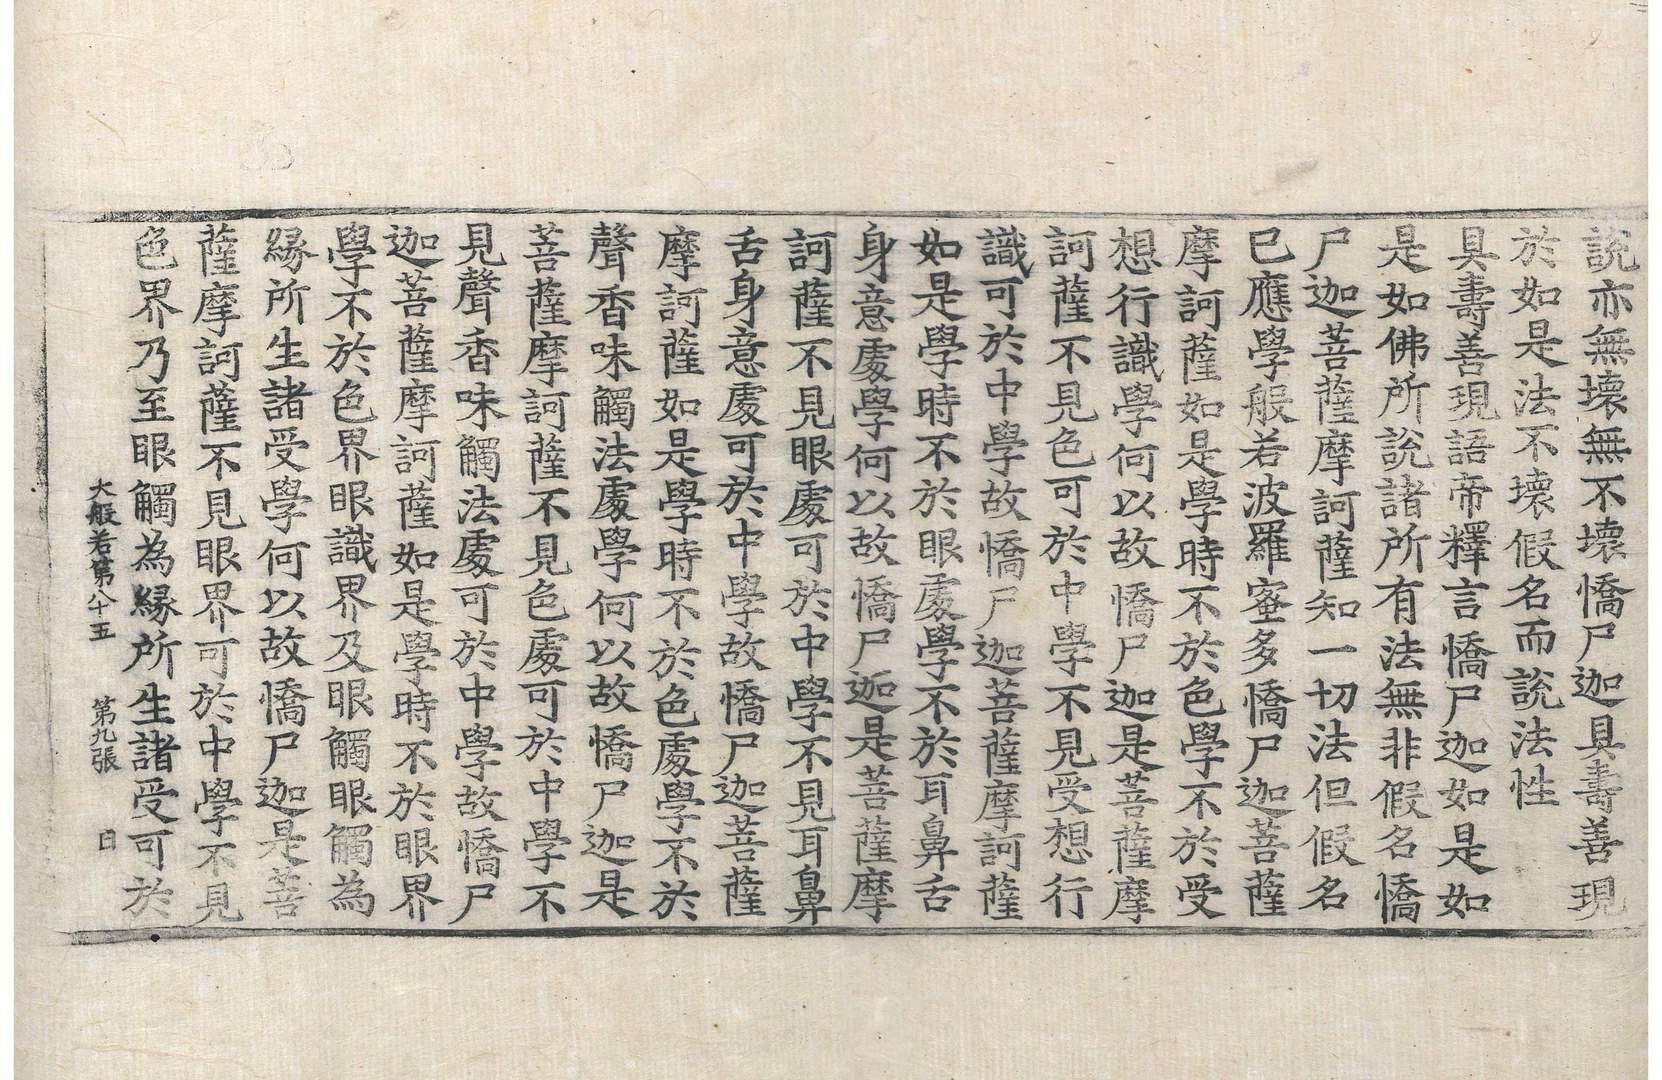 說亦無壞無不壞憍尸迦具壽善現
於如是法不壞假名而說法性
具壽善現語帝釋言憍尸迦如是如
是如佛所說諸所有法無非假名憍
尸迦菩薩摩訶薩知一切法但假名
已應學般若波羅蜜多憍尸迦菩薩
摩訶薩如是學時不於色學不於受
想行識學何以故憍尸迦是菩薩摩
訶薩不見色可於中學不見受想行
識可於中學故憍尸迦菩薩摩訶薩
如是學時不於眼處學不於耳鼻舌
身意處學何以故憍尸迦是菩薩摩
訶薩不見眼處可於中學不見耳鼻
舌身意處可於中學故憍尸迦菩薩
摩訶薩如是學時不於色處學不於
聲香味觸法處學何以故憍尸迦是
菩薩摩訶薩不見色處可於中學不
見聲香味觸法處可於中學故憍尸
迦菩薩摩訶薩如是學時不於眼界
學不於色界眼識界及眼觸眼觸為
緣所生諸受學何以故憍尸迦是菩
薩摩訶薩不見眼界可於中學不見
色界乃至眼觸為緣所生諸受可於
大般若第八十五 第九張 日